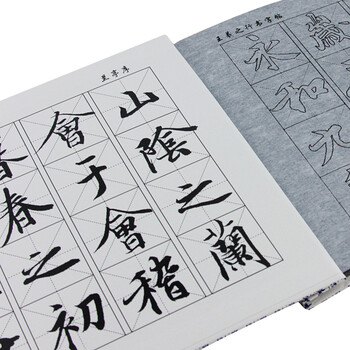 王羲之行书字帖
歲
永和九
亭序
山陰之蘭
會于會稽
暮春之初